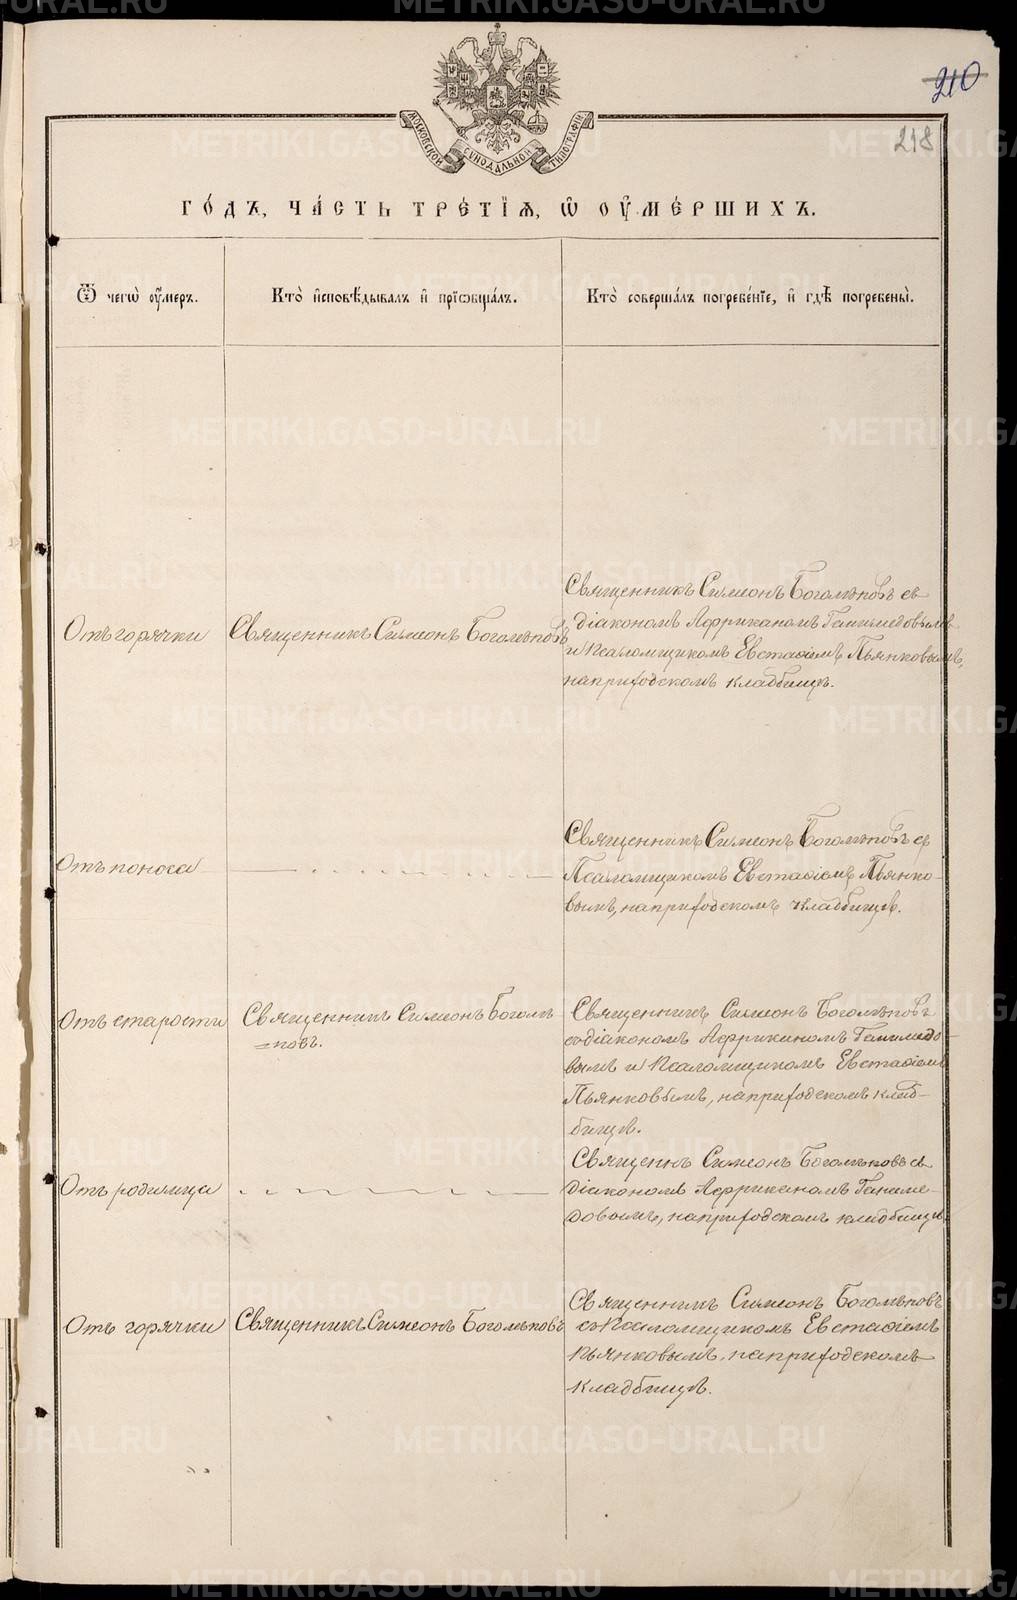 210
218
МОСКОВСКОЙ СѴНОДАЛЬНОЙ ТИПОГРАФІИ
ГО́ДЪ, ЧА́СТЬ ТРЕ́ТІѦ, Ѡ҆ ОУ҆МЕ́РШИХЪ.
Ѿ чегѡ̀ оу҆́мер.
Кто̀ и҆сповѣ́дывалъ и҆ прїѡбща́лъ.
Кто̀ соверша́лъ погребе́нїе, и҆ гдѣ̀ погребены̀.
Отъ горячки
Священникъ Симеонъ Боголѣповъ
Священникъ Симеонъ Боголѣповъ съ
діакономъ Африканомъ Ганимедовымъ
и Псаломщикомъ Евстафіемъ Пьянковымъ,
на приходскомъ кладбищѣ.
Отъ поноса
Священникъ Симеонъ Боголѣповъ съ
Псаломщикомъ Евстафіемъ Пьянко-
вымъ, на приходскомъ кладбищѣ.
Отъ старости
Священникъ Симеонъ Боголѣ-
=повъ.
Священникъ Симеонъ Боголѣповъ
съ діакономъ Африканомъ Ганимедо-
вымъ и Псаломщикомъ Евстафіемъ
Пьянковымъ, на приходскомъ клад-
бищѣ.
Отъ родимца
Священнъ Симеонъ Боголѣповъ съ
діакономъ Африканомъ Ганиме-
довымъ, на приходскомъ кладбищѣ.
Отъ горячки
Священникъ Симеонъ Боголѣповъ
Священникъ Симеонъ Боголѣповъ
съ Псаломщикомъ Евстафіемъ
Пьянковымъ, на приходскомъ
кладбищѣ.
METRIKI.GASO-URAL.RU